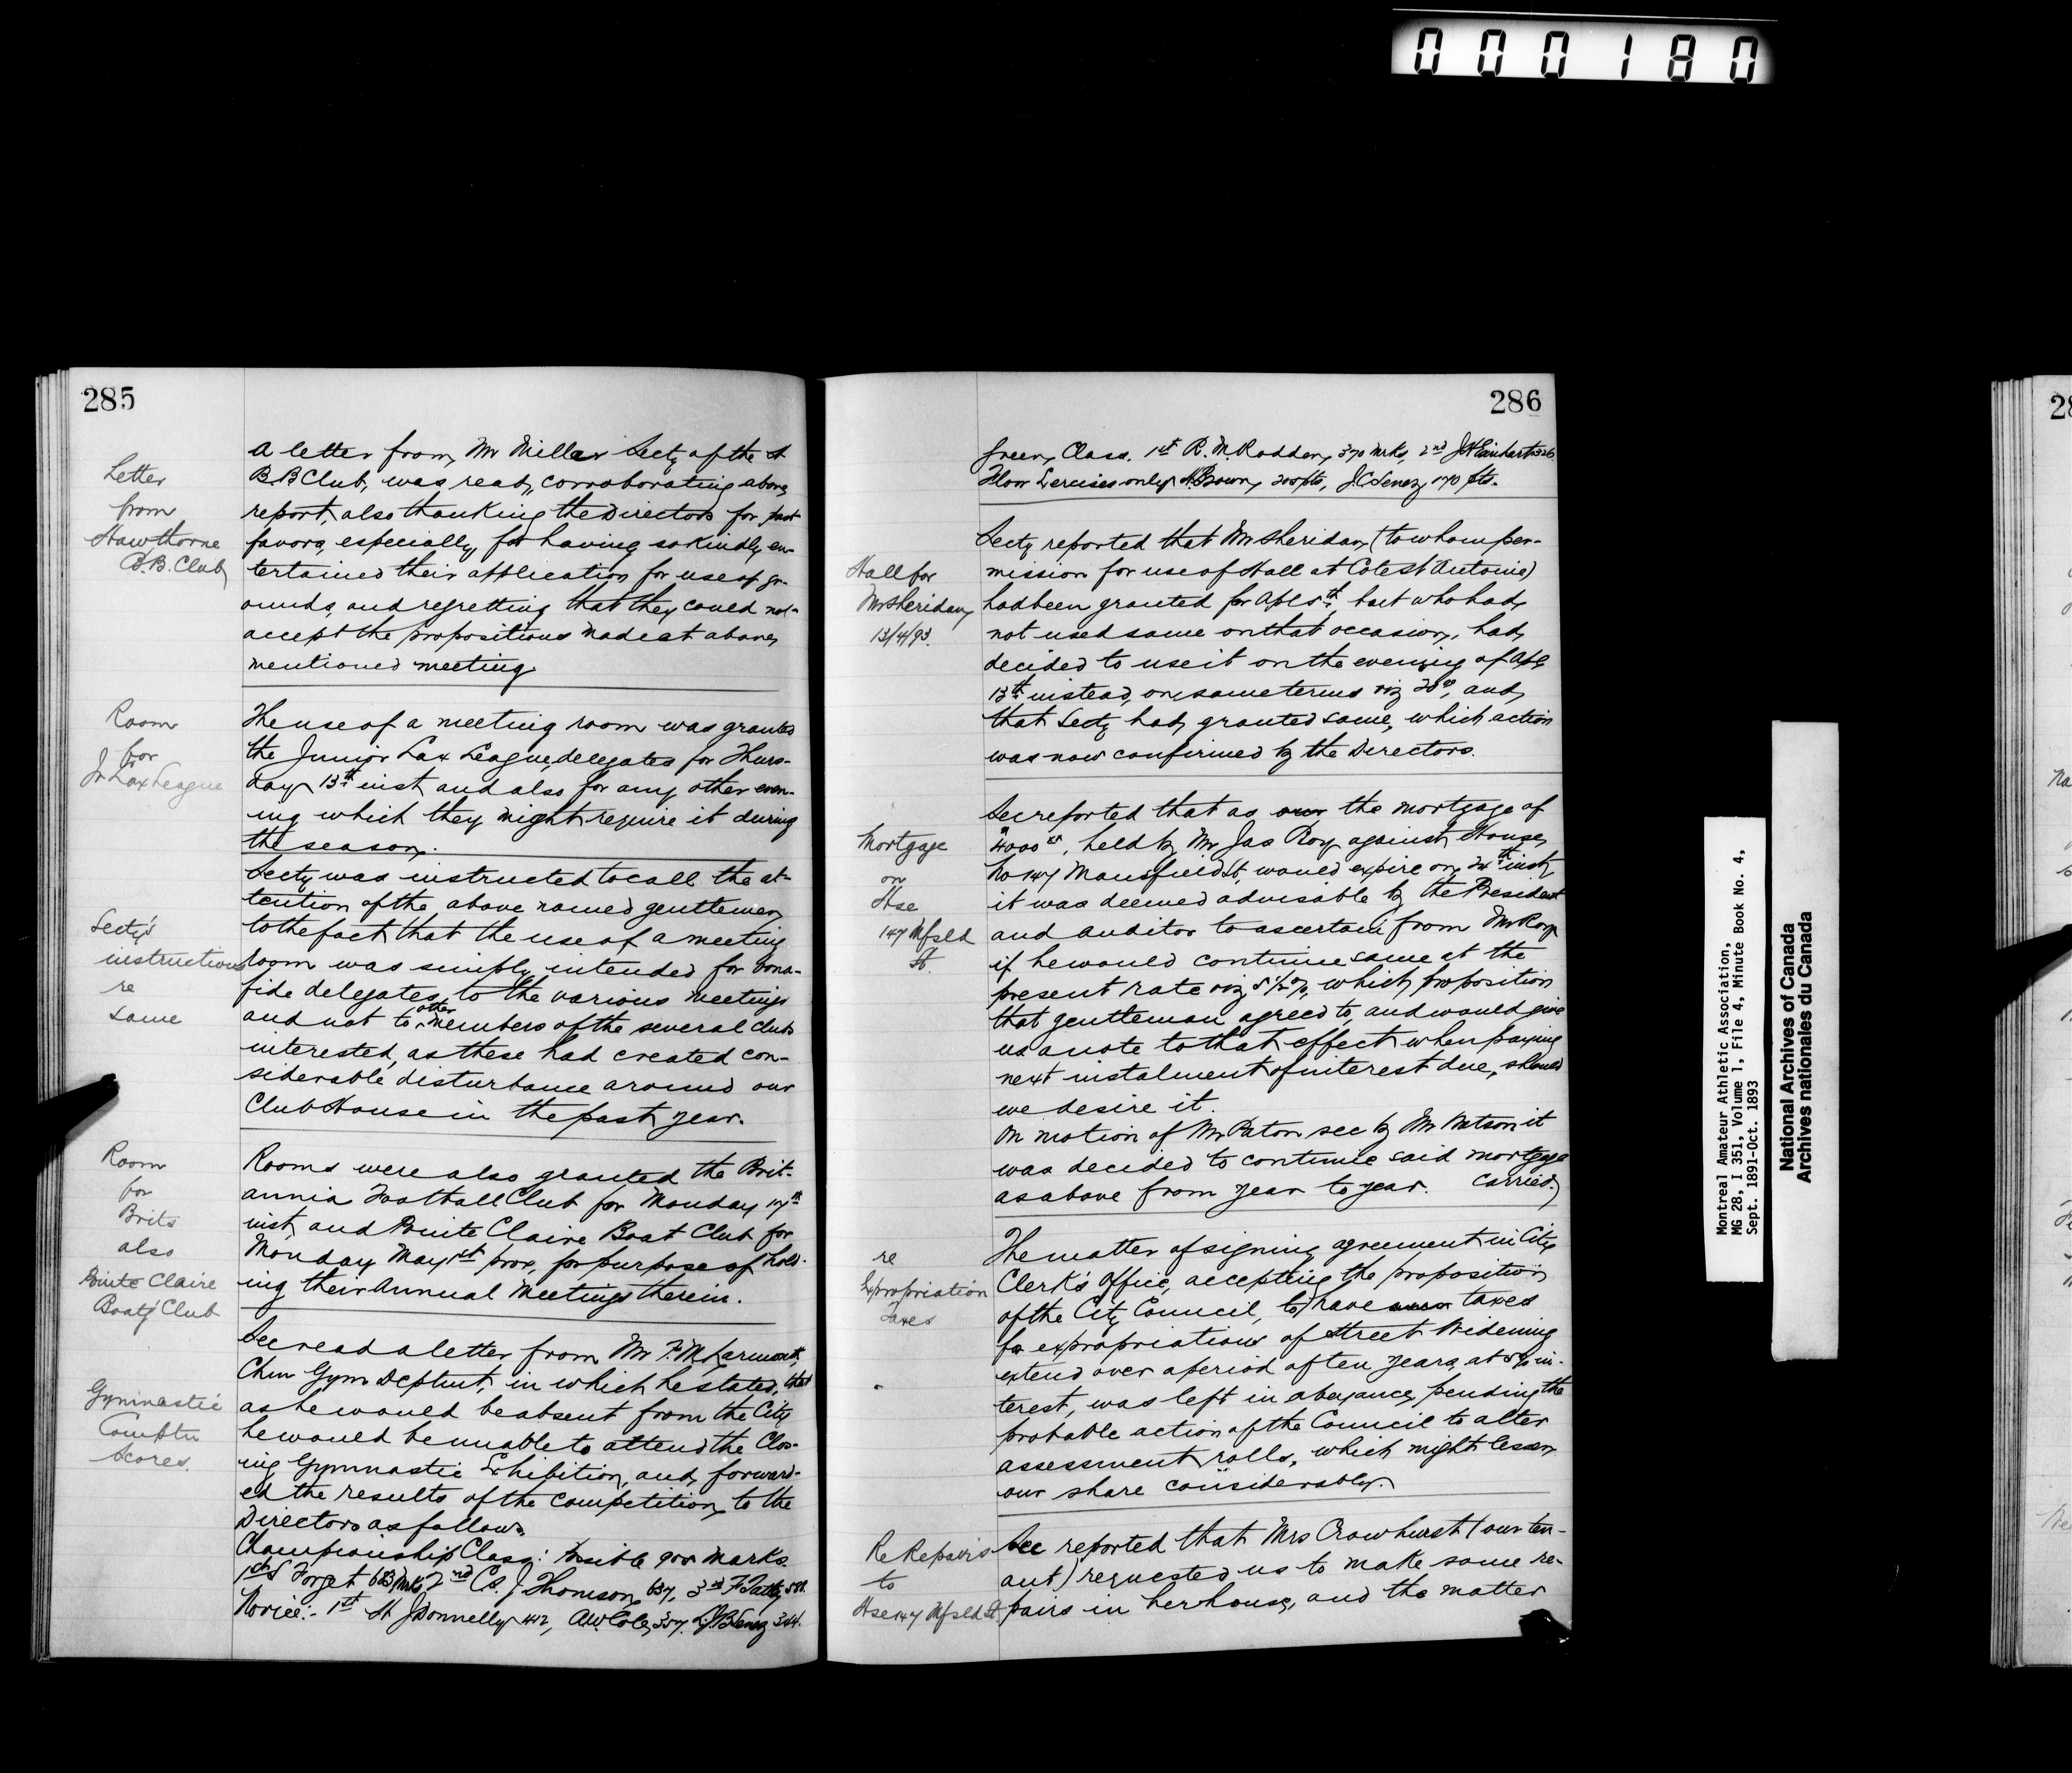 000180
285
Letter
from
Hawthorne
B.B. Club
A letter from Mr Miller Secty of the H
B.B Club, was read, corroborating above
report, also thanking the Directors for past
favors, especially for having so kindly en-
tertained their application for use of gr-
ounds, and regretting that they could not
accept the propositions made at above
mentioned meeting
Room
for
Jr Lax League
The use of a meeting room was granted
the Junior Lax League delegates for Thurs-
day 13th inst and also for any other even-
ing which they might require it during
the season.
Secty's
instructions
re
same
Secty was instructed to call the at-
tention of the above named gentlemen
to the fact that the use of a meeting
room was simply intended for bona-
fide delegates to the various meetings
and not to other members of the several clubs
interested, as these had created con-
siderable disturbance around our
Club House in the past year.
Room
for
Brits
also
Pointe Claire
Boatg Club
Rooms were also granted the Brit-
annia Football Club for Monday 17th
inst, and Pointe Claire Boat Club for
Monday May 1st prox, for purpose of hold-
ing their Annual Meetings therein.
Gymnastic
Comptn
Scores.
Sec read a letter from Mr F. M. Larmonth,
Chm Gym Deptmt, in which he stated, that
as he would be absent from the City
he would be unable to attend the Clos-
ing Gymnastic Exhibition, and forward-
ed the results of the competition, to the
Directors as follows
Championship Class: Possible 900 marks.
1st S Forget 683 Mrks, 2nd Cd. J. Thomson, 637, 3rd F. Tatty, 588.
Novice:- 1st H J Donnelly 412, A.W. Cole, 357. L.J.B. Senez 344.
286
Green Class. 1st R. M. Rodden, 370 Mrks, 2nd J H Einhart 326.
Floor Exercises only, N. Brown, 205 pts, J. C Senez 170 pts.
Hall for
Mr Sheridan
13/4/93.
Secty reported that Mr Sheridan (to whom per-
mission for use of Hall at Cote St Antoine)
had been granted for Apl 5th, but who had
not used same on that occasion, had
decided to use it on the evening of Apl
13th instead, on same terms viz 20.00, and
that Secty had granted same, which action
was now confirmed by the Directors.
Mortgage
on
Hse
147 Mfsld
St.
Sec reported that as our the mortgage of
$4000.00, held by Mr Jas Roy against House
No 147 Mansfield St, would expire on 24th inst,
it was deemed advisable by the President
and Auditor to ascertain from Mr Roy
if he would continue same at the
present rate viz 5 1/2 %, which proposition
that gentleman agreed to, and would give
us a note to that effect when paying
next instalment of interest due, should
we desire it.
On motion of Mr Paton sec by Mr Watson it
was decided to continue said mortgage
as above from year to year. Carried.
re
Expropriation
Taxes
The matter of signing agreement in City
Clerk's Office, accepting the proposition
of the City Council, to have taxes
for expropriations of Street Widening
extend over a period of ten years, at 5% in-
terest, was left in abeyance, pending the
probable action of the Council to alter
assessment rolls, which might lessen
our share considerably.
Re Repairs
to
Hse 147 Mfsld St.
Sec reported that Mrs Crowhurst (our ten-
ant) requested us to make some re-
pairs in her house, and the matter
Montreal Amateur Athletic Association,
MG 28, I 351, Volume 1, File 4, Minute Book No. 4,
Sept. 1891-Oct. 1893
National Archives of Canada
Archives nationales du Canada